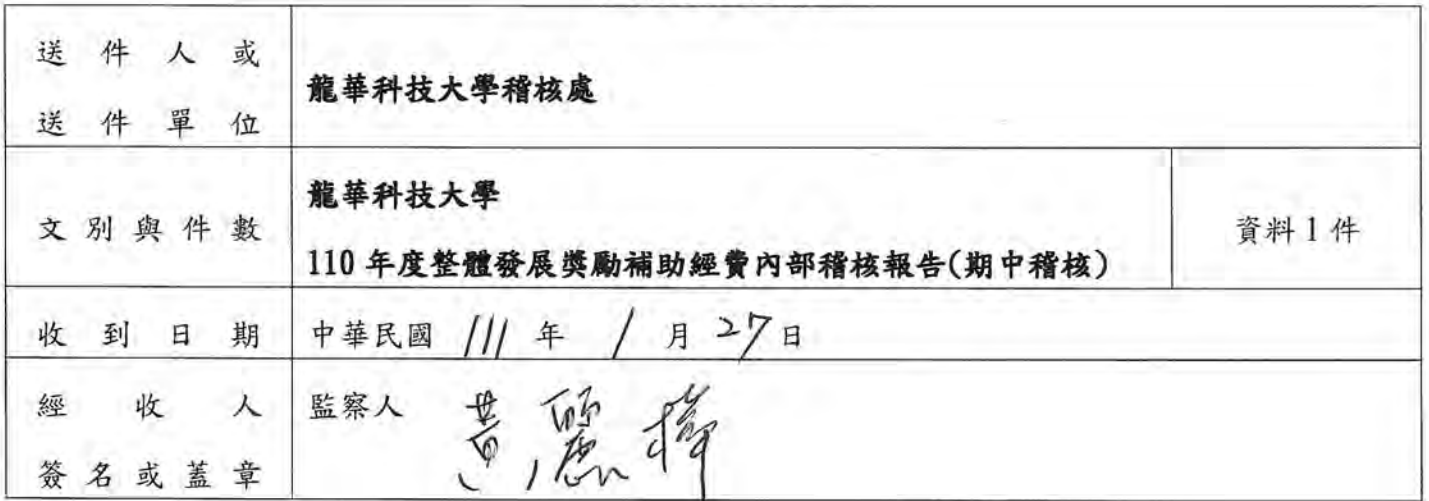 送件人或
送件單位
龍華科技大學稽核處
文別與件數
龍華科技大學
110 年度整體發展獎勵補助經費內部稽核報告(期中稽核)
資料 1 件
收到日期
中華民國 111 年 1 月 27 日
經收人
簽名或蓋章
監察人 黃麗